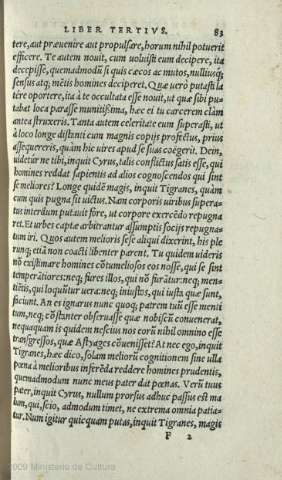 LIBER TERTIVS. 83
tere, aut præuenire aut propulsare, horum nihil potuerit
efficere. Te autem nouit, cum uoluisti eum decipere, ita
decepisse, quemadmodū si quis cæcos ac mutos, nulliusq́;
sensus atq; mētis homines deciperet. Quæ uero putasti la
tere oportere, ita à te occultata esse nouit, ut quæ sibi pu-
tabat loca fuisse munitissima, hæc ei tu carcerem clàm
antea struxeris. Tanta autem celeritate eum superasti, ut
à loco longe distanti cum magnis copijs profectus, prius
assequereris, quàm hic uires apud se suas coëgerit. Dein,
uidetur ne tibi, inquit Cyrus, talis conflictus satis esse, qui
homines reddat sapientis ad alios cognoscendos qui sint
se meliores? Longe quidē magis, inquit Tigranes, quàm
cum quis pugna sit uictus. Nam corporis uiribus supera-
tus interdum putauit fore, ut corpore exercēdo repugna
ret. Et urbes captæ arbitrantur assumptis socijs repugna-
tum iri. Quos autem meliores se se aliqui dixerint, his ple
runq; etiā non coacti libenter parent. Tu quidem uideris
nō existimare homines cōtumeliosos eos nosse, qui se sint
temperātiores: neq; fures illos, qui nō furātur: neq; men-
titiētis, qui loquūtur uera: neq; iniustos, qui iusta quæ sunt,
faciunt. An es ignarus nunc quoq; patrem tuū esse menti
tum, neq; cōstanter obseruasse quæ nobiscū conuenerat,
nequaquam is quidem nescius nos eorū nihil omnino esse
transgressos, quæ Astyages cōuenisset? At nec ego, inquit
Tigranes, hæc dico, solam meliorū cognitionem sine ulla
pœna à melioribus inferēda reddere homines prudentis,
quemadmodum nunc meus pater dat pœnas. Verū tuus
pater, inquit Cyrus, nullum prorsus adhuc passus est ma
lum, qui, scio, admodum timet, ne extrema omnia patia-
tur. Num igitur quicquam putas, inquit Tigranes, magis
F 2
2009 Ministerio de Cultura